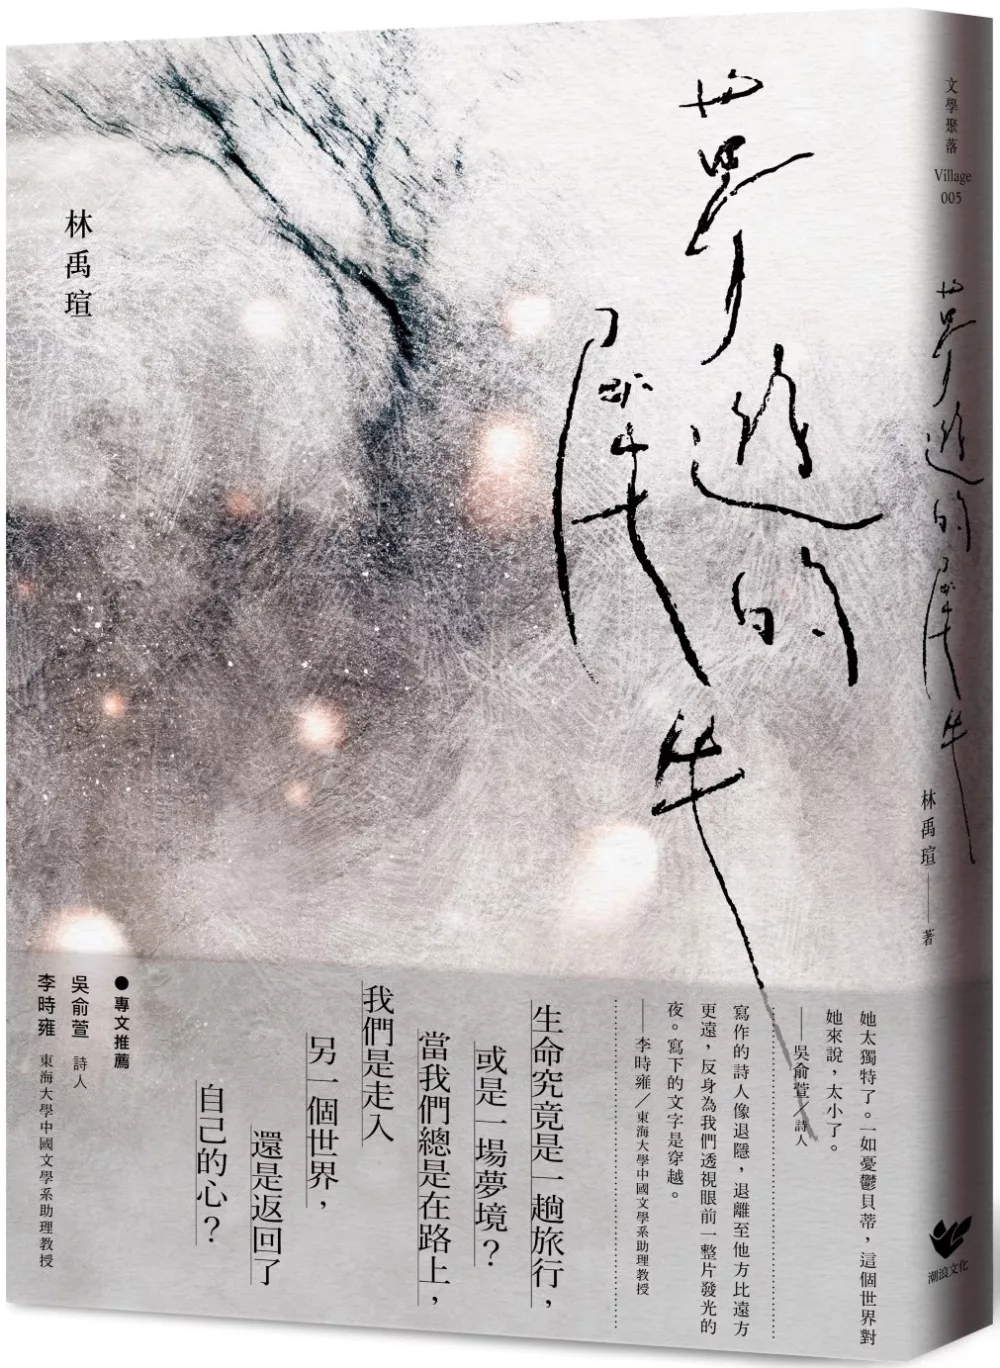 林禹瑄
夢遊的
犀牛
她太獨特了。一如憂鬱貝蒂，這個世界對
她來說，太小了。
——吳俞萱／詩人
寫作的詩人像退隱，退離至他方比遠方
更遠，反身為我們透視眼前一整片發光的
夜。寫下的文字是穿越。
——李時雍／東海大學中國文學系助理教授
生命究竟是一趟旅行，
或是一場夢境？
當我們總是在路上，
我們是走入
另一個世界，
還是返回了
自己的心？
●專文推薦
吳俞萱 詩人
李時雍 東海大學中國文學系助理教授
文學聚落
Village
005
夢遊的犀牛
林禹瑄——著
潮浪文化